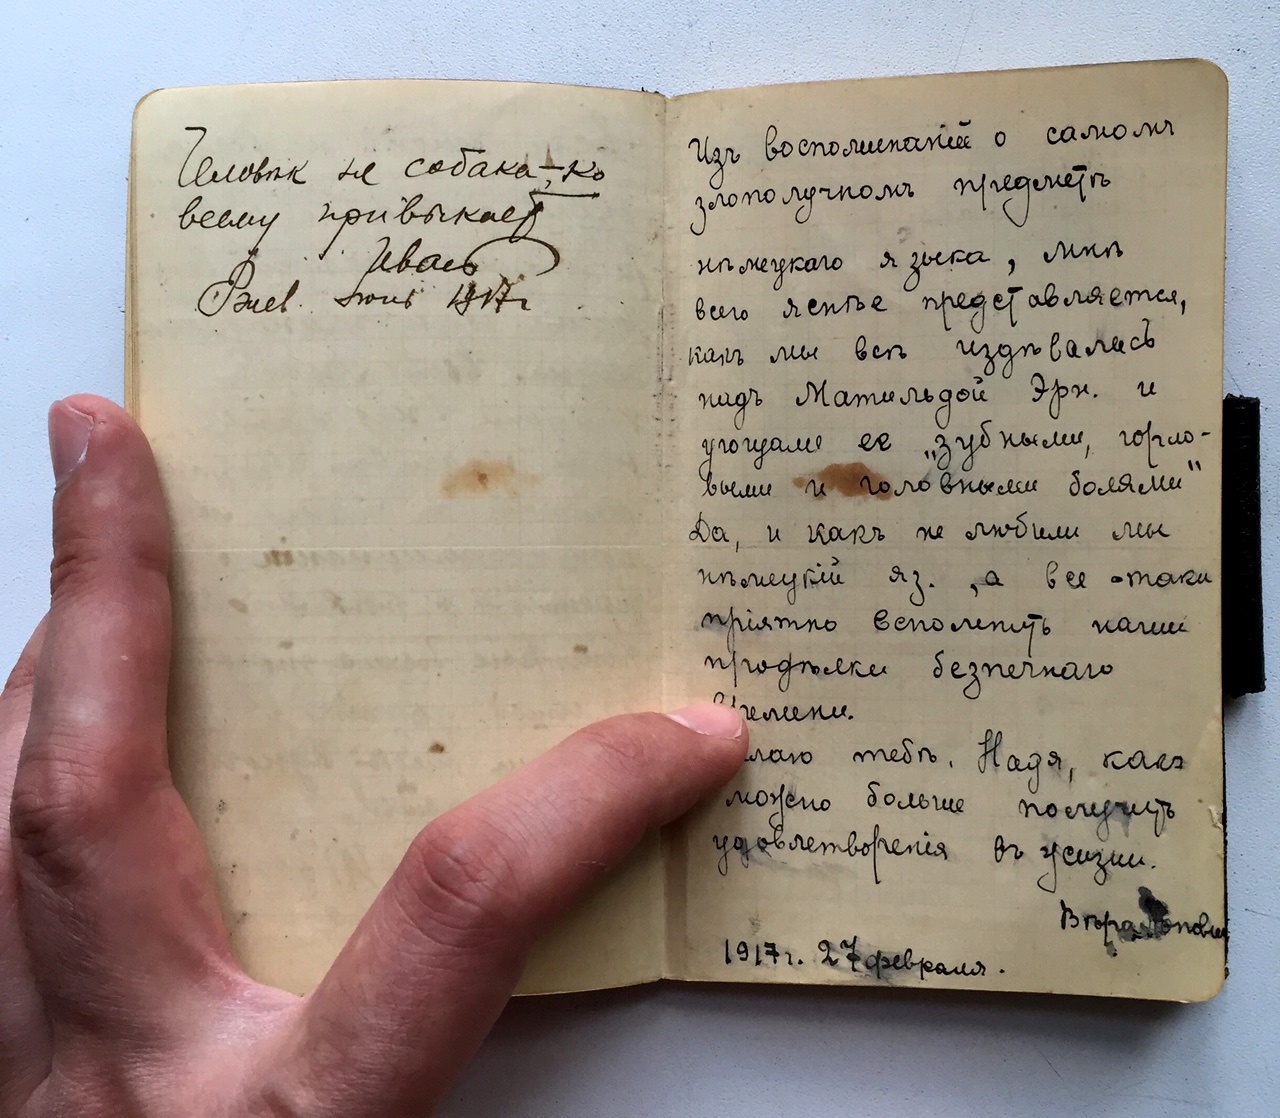 Человѣк не собака, – ко
всему привыкает
Иваси
июнь 1917 г.
Изъ воспоминаній о самомъ
злополучномъ предметѣ
нѣмецкаго языка, мнѣ
всего яснѣе представляется,
какъ мы всѣ издѣвались
надъ Матильдой Эрн. и
угощали ее „зубными, горло-
выми и головными болями“
Да, и какъ не любили мы
нѣмецкій яз., а все-таки
пріятно вспомнить наши
продѣлки безпечнаго
времени.
лаю тебѣ, Надя, какъ
можно больше получить
удовлетворенія въ жизни.
Вѣра
1917 г. 27 февраля.